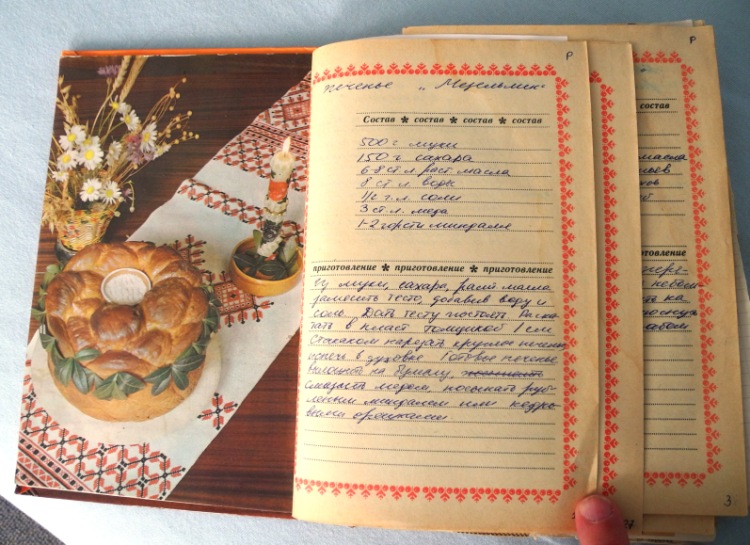 Р
печенье „Мезельмек"
Состав ✻ состав ✻ состав ✻ состав
500 г муки
150 г сахара
6-8 ст л раст масла
8 ст л воды
1/2 ч. л. соли
3 ст. л. меда
1-2 горсти миндаля
приготовление ✻ приготовление ✻ приготовление
Из муки, сахара, раст масла
замесить тесто, добавив воду и
соль. Дать тесту постоять. Раска-
тать в пласт толщиной 1 см
Стаканом нарезать круглое печенье,
испечь в духовке. Готовое печенье
выложить на бумагу,
смазать медом, посыпать руб-
леным миндалем или кедро
выми орешками
Р
состав
масла
ров
товление
на
3